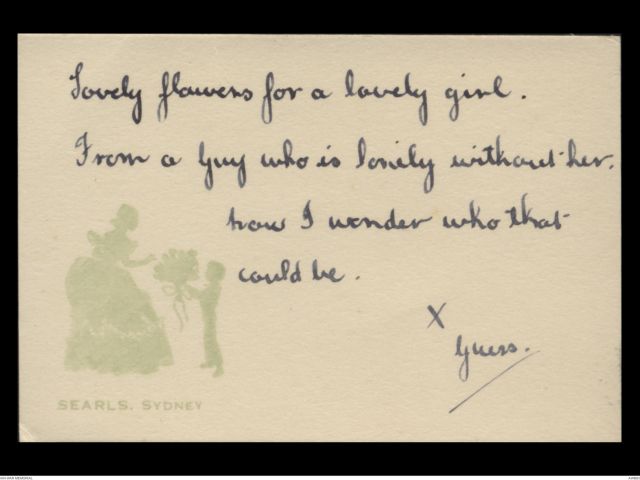 Lovely flowers for a lovely girl.
From a Guy who is lonily without her.
now I wonder who that
could be.
X
Guess.
SEARLS. SYDNEY